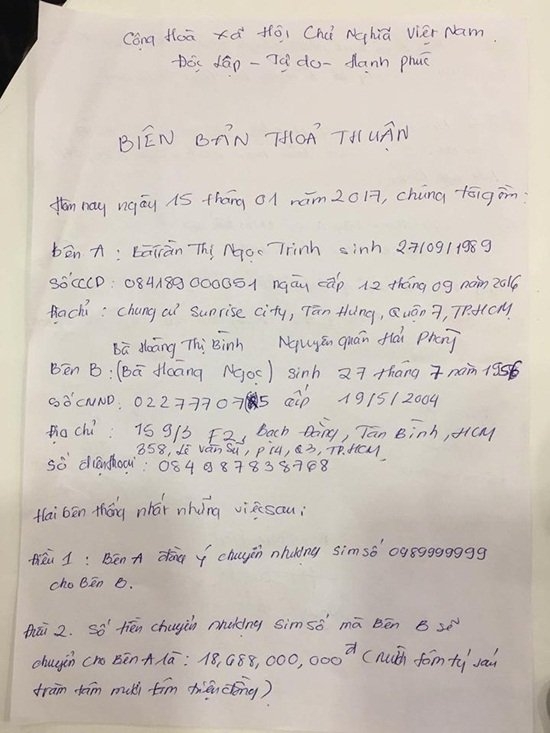 Cộng Hoà Xã Hội Chủ Nghĩa Việt Nam.
Độc Lập - Tự do - Hạnh phúc
BIÊN BẢN THOẢ THUẬN
Hôm nay ngày 15 tháng 01 năm 2017, chúng tôi gồm:
Bên A : Bà Trần Thị Ngọc Trinh sinh 27/09/1989
Số CCCD: 084189000051 ngày cấp 12 tháng 09 năm 2016
Địa chỉ : chung cư Sunrise city, Tân Hưng, Quận 7, TP.HCM
Bà Hoàng Thị Bình Nguyên quán Hải Phòng
Bên B: (Bà Hoàng Ngọc) sinh 27 tháng 7 năm 1956
Số CMND: 02277707 5 cấp 19/5/2004
Địa chỉ : 159/3 F2, Bạch Đằng, Tân Bình, HCM
358, Lê Văn Sỹ, P14, Q3, TP.HCM
Số điện thoại : 084 987838768
Hai bên thống nhất những việc sau:
Điều 1 : Bên A đồng ý chuyển nhượng sim số 0989999999
cho Bên B.
Điều 2. Số tiền chuyển nhượng sim số mà Bên B sẽ
chuyển cho Bên A là : 18,688,000,000đ (mười tám tỷ sáu
trăm tám mươi tám triệu đồng)